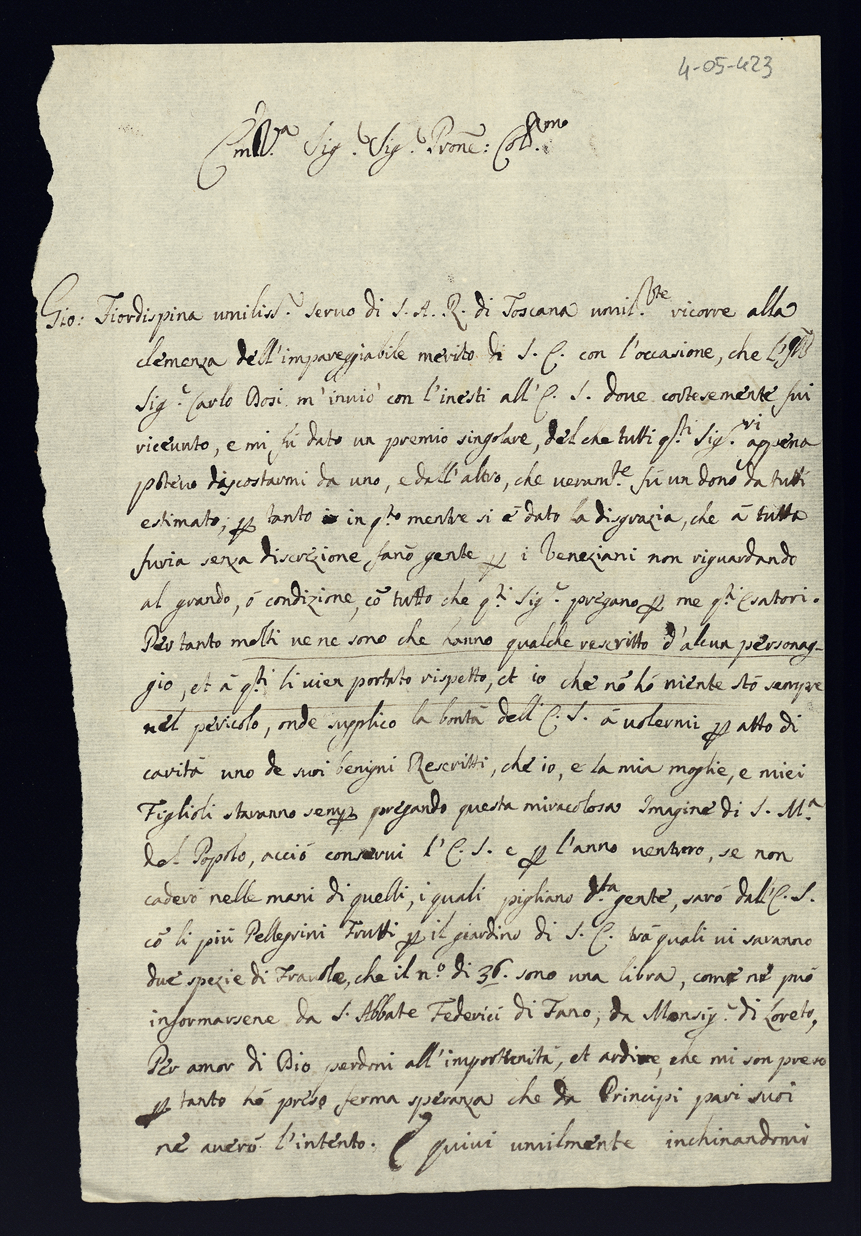 4-05-423
Em.a Sig.r Sig.r Pronē: Col.mo
Gio: Fiordispina umiliss.o seruo di S. A. R. di Toscana umil.te ricorre alla
clemenza dell'impareggiabile merito di S. E. con l'occasione, che
Sig.r Carlo Bosi m'inuiò con l'inesti all'E. S. doue cortesemente fui
riceuuto, e mi fù dato un premio singolare, del che tutti q.sti Sig.ri appena
poteuo discostarmi da uno, e dall'altro, che ueram.te fù un dono da tutti
estimato, ꝑ tanto in q.to mentre si è dato la disgrazia, che à tutta
furia senza discrezione fanō gente ꝑ i Veneziani non riguardando
al grando, ó condizione, cō tutto che q.ti Sig.ri pregano ꝑ me q.ti Esatori.
Per tanto molti ue ne sono che hanno qualche rescritto d'alcun personag-
gio, et à q.ti li uien portato rispetto, et io che nō hó niente stó sempre
nel pericolo, onde supplico la bontà dell'E. S. à uolermi ꝑ atto di
carità uno de suoi benigni Rescritti, che io, e la mia moglie, e miei
Figlioli staranno semꝑ pregando questa miracolosa Imagine di S. M.a
del Popolo, acció conserui l'E. S. e ꝑ l'anno uenturo, se non
caderó nelle mani di quelli, i quali pigliano d.ta gente, saró dall'E. S.
cō li piú Pellegrini Frutti ꝑ il giardino di S. E. trà quali ui saranno
due spezie di Frauole, che il n.o di 36. sono una libra, come ne può
informarsene da S. Abbate Federici di Fano, da Monsig.r di Loreto,
Per amor di Dio perdoni all'importunità, et ardire, che mi son preso
ꝑ tanto hó preso ferma speranza che da Principi pari suoi
ne aueró l'intento. E quiui umilmente inchinandomi